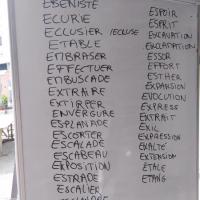 EBENISTE
ECURIE
ECCLUSIER/ECLUSE
ETABLE
EMBRASER
EFFECTUER
EMBUSCADE
EXTRAIRE
EXTIRPER
ENVERGURE
ESPLANADE
ESCORTER
ESCALADE
ESCABEAU
EXPOSITION
ESTRADE
ESCALIER
ESPOIR
ESPRIT
EXCAVATION
EXCLAMATION
ESSOR
EFFORT
ESTHER
EXPANSION
EVOLUTION
EXPRESS
EXTRAIT
EXIL
EXPRESSION
EXALTÉ
EXTENSION
ETALE
ETANG